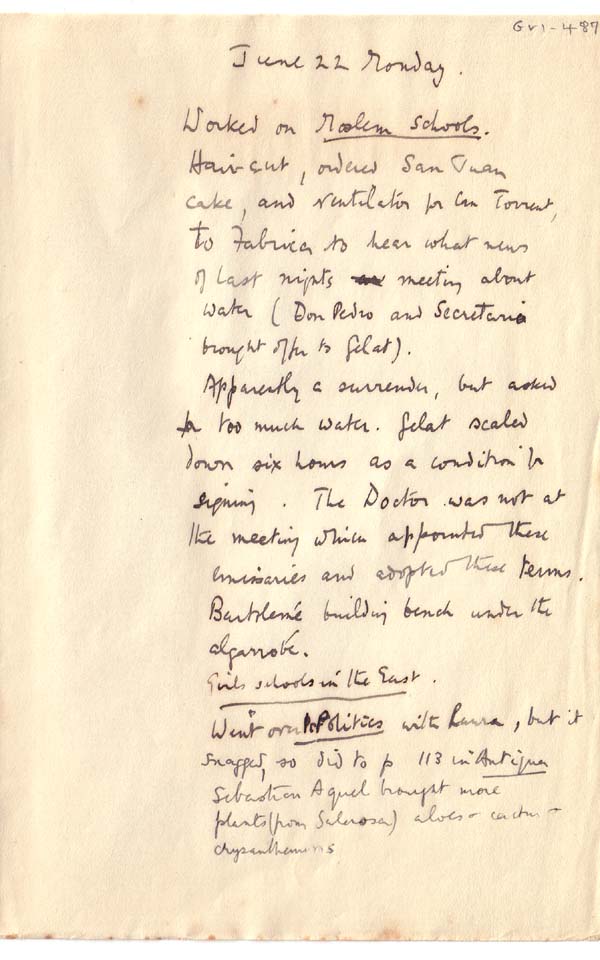 Gv1-487
June 22 Monday.
Worked on Moslem Schools.
Hair cut, ordered San Juan
cake, and ventilator for Can Torrent,
to Fabrica to hear what news
of last nights meeting about
water (Don Pedro and Secretario
brought offer to Gelat).
Apparently a surrender, but asked
for too much water. Gelat scaled
down six hours as a condition for
signing. The Doctor was not at
the meeting which appointed these
emissaries and adopted these terms.
Bartolemé building bench under the
algarrobé.
Girls schools in the East.
Went over Politics with Laura, but it
snagged, so did to p 113 in Antigua
Sebastian Aquel brought more
plants (from Salerosa) aloes + cactus +
chrysanthemums